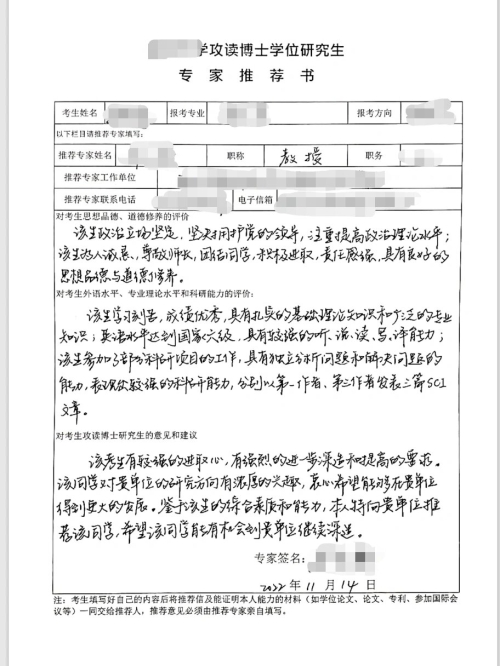 学攻读博士学位研究生
专家推荐书
考生姓名 报考专业 报考方向
以下栏目请推荐专家填写:
推荐专家姓名 职称 教授 职务
推荐专家工作单位
推荐专家联系电话 电子信箱
对考生思想品德、道德修养的评价
该生政治立场坚定,坚决拥护党的领导,注重提高政治理论水平;
该生为人诚恳,尊敬师长,团结同学,积极进取,责任感强,具有良好的
思想品德与道德修养。
对考生外语水平、专业理论水平和科研能力的评价:
该生学习刻苦,成绩优秀,具有扎实的基础理论知识和广泛的专业
知识;英语水平达到国家六级,具有较强的听、说、读、写、译能力;
该生参加了部分科研项目的工作,具有独立分析问题和解决问题的
能力,表现出较强的科研能力,分别以第一作者、第二作者发表三篇SCI
文章。
对考生攻读博士研究生的意见和建议
该考生有较强的进取心,有强烈的进一步深造和提高的要求。
该同学对贵单位的研究方向有浓厚的兴趣,衷心希望能够在贵单位
得到更大的发展。鉴于该生的综合素质和能力,本人特向贵单位推
荐该同学,希望该同学能有机会到贵单位继续深造。
专家签名:
2022年11月14日
注:考生填写好自己的内容后将推荐信及能证明本人能力的材料(如学位论文、论文、专利、参加国际会
议等)一同交给推荐人,推荐意见必须由推荐专家亲自填写。